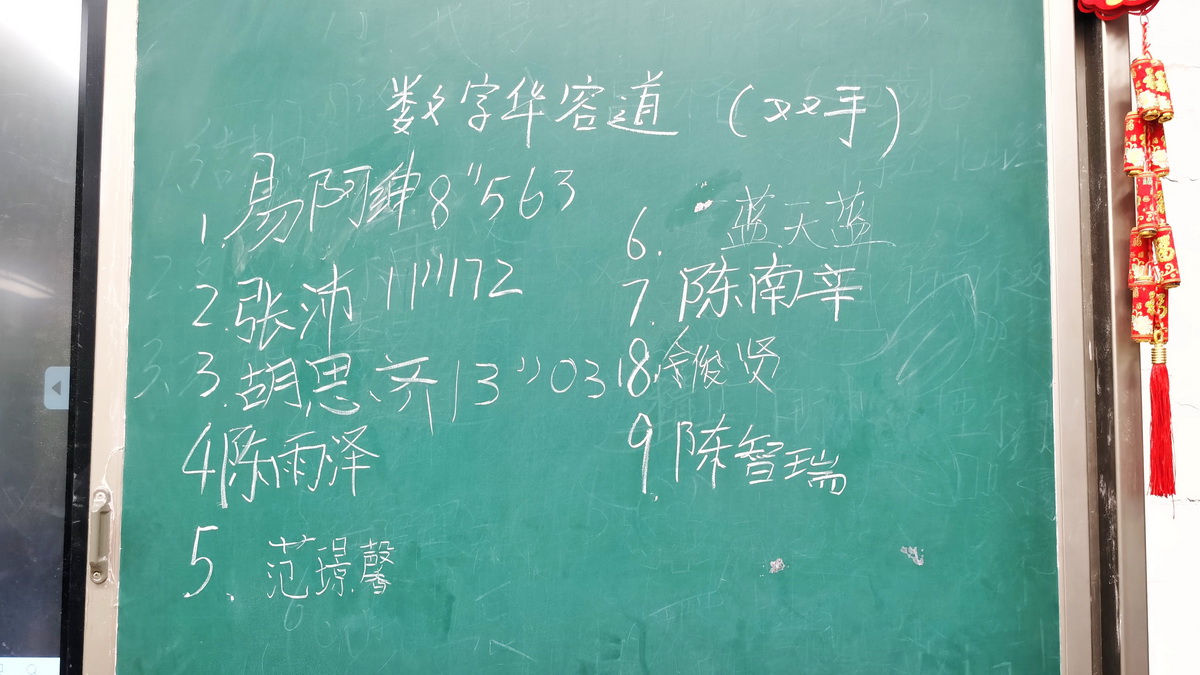 数字华容道 (双手)
1. 易阿绅 8"563
2. 张沛 11"172
3. 胡思齐 13"031
4 陈雨泽
5、范璟馨
6. 蓝天蓝
7. 陈南辛
8. 金俊贤
9. 陈智瑞
福
福
福